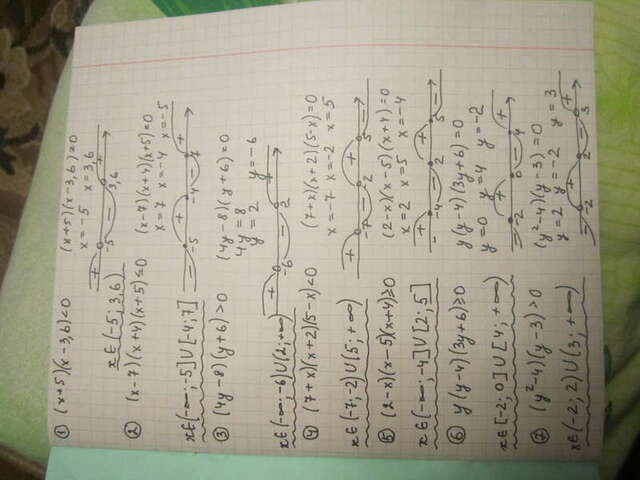 ① (x+5)(x-3,6)<0 (x+5)(x-3,6)=0
x=-5 x=3,6
+ -5 - 3,6 +
x∈(-5; 3,6)
② (x-7)(x+4)(x+5)≤0 (x-7)(x+4)(x+5)=0
x=7 x=-4 x=-5
- -5 + -4 - 7 +
x∈(-∞;-5]∪[-4;7]
③ (4y-8)(y+6)>0 (4y-8)(y+6)=0
4y=8 y=-6
y=2
+ -6 - 2 +
x∈(-∞;-6)∪(2;+∞)
④ (7+x)(x+2)(5-x)<0 (7+x)(x+2)(5-x)=0
x=-7 x=-2 x=5
-7 + -2 - 5 +
x∈(-7;-2)∪(5;+∞)
⑤ (2-x)(x-5)(x+4)≥0 (2-x)(x-5)(x+4)=0
x=2 x=5 x=-4
- -4 + 2 - 5 +
x∈(-∞;-4]∪[2;5]
⑥ y(y-4)(3y+6)≥0 y(y-4)(3y+6)=0
y=0 y=4 y=-2
- -2 + 0 - 4 +
x∈[-2;0]∪[4;+∞)
⑦ (y²-4)(y-3)>0 (y²-4)(y-3)=0
y=2 y=-2 y=3
- -2 + 2 - 3 +
x∈(-2;2)∪(3;+∞)